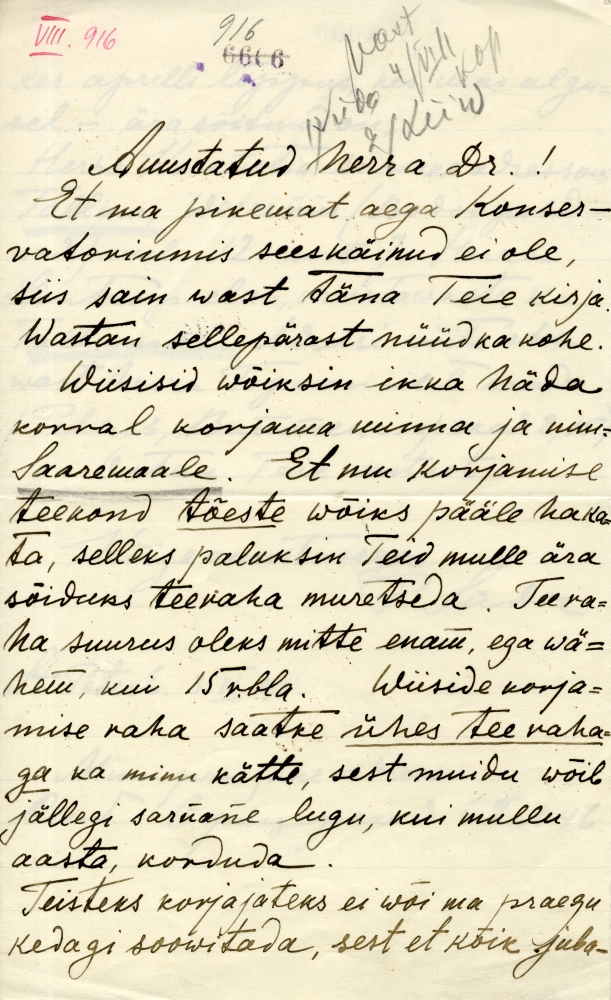 VIII. 916
916
6606
Wast
4/VIII
Kop
Auustatud herra Dr.!
Et ma pikemat aega Konser-
vatoriumis seeskäinud ei ole,
siis sain wast täna Teie kirja.
Wastan sellepärast nüüdka kohe.
Wiisisid wõiksin ikka häda
korral korjama minna ja nim=
Saaremaale. Et mu korjamise
teekond tõeste wõiks pääle haka=
ta, selleks paluksin Teid mulle ära
sõiduks teeraha muretseda. Teera=
ha suurus oleks mitte enam, ega wä=
hem, kui 15 rbla. Wiiside korja=
mise raha saatke ühes tee raha=
ga ka minu kätte, sest muidu wõib
jällegi sarnane lugu, kui mullu
aasta, korduda.
Teisteks korjajateks ei wõi ma praegu
kedagi soowitada, sest et kõik juba-